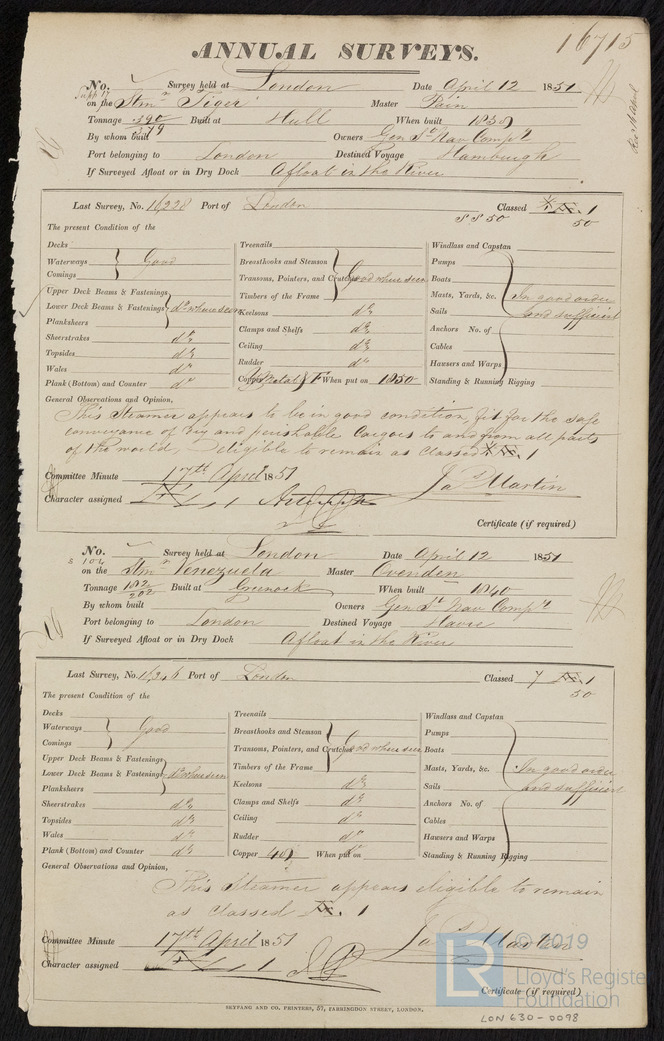 16715
ANNUAL SURVEYS.
No. Survey held at London Date April 12 1851
on the Stmr Tiger Master Pain
Tonnage 390 Built at Hull When built 1838
379
By whom built Owners Genl St Nav Compy
Port belonging to London Destined Voyage Hamburgh
If Surveyed Afloat or in Dry Dock Afloat in the River
Last Survey, No. 16228 Port of London Classed 1
SS 50 50
The present Condition of the
Decks
Waterways
Comings
Good
Upper Deck Beams & Fastenings
Lower Deck Beams & Fastenings
Planksheers
do where seen
Sheerstrakes do
Topsides do
Wales do
Plank (Bottom) and Counter do
Treenails
Breasthooks and Stemson
Transoms, Pointers, and Crutches
Timbers of the Frame
Good where seen
Keelsons do
Clamps and Shelfs do
Ceiling do
Rudder do
Copper Metal F When put on 1850
Windlass and Capstan
Pumps
Boats
Masts, Yards, &c.
Sails
Anchors No. of
Cables
Hawsers and Warps
In good order
and sufficient
Standing & Running Rigging
General Observations and Opinion,
This Steamer appears to be in good condition, fit for the safe
conveyance of dry and perishable Cargoes to and from all parts
of the world, & eligible to remain as classed 1
Committee Minute 17th April 1851 Jas Martin
Character assigned 1
Certificate (if required)
No. Survey held at London Date April 12 1851
S 104
on the Stmr Venezuela Master Ovenden
Tonnage 182 Built at Greenock When built 1840
202
By whom built Owners Genl St Nav Compy
Port belonging to London Destined Voyage Havre
If Surveyed Afloat or in Dry Dock Afloat in the River
Last Survey, No. 16246 Port of London Classed 7 1
50
The present Condition of the
Decks
Waterways
Comings
Good
Upper Deck Beams & Fastenings
Lower Deck Beams & Fastenings
Planksheers
do where seen
Sheerstrakes do
Topsides do
Wales do
Plank (Bottom) and Counter do
Treenails
Breasthooks and Stemson
Transoms, Pointers, and Crutches
Timbers of the Frame
Good where seen
Keelsons do
Clamps and Shelfs do
Ceiling do
Rudder do
Copper 49 When put on do
Windlass and Capstan
Pumps
Boats
Masts, Yards, &c.
Sails
Anchors No. of
Cables
Hawsers and Warps
In good order
and sufficient
Standing & Running Rigging
General Observations and Opinion,
This Steamer appears eligible to remain
as classed 1
Committee Minute 17th April 1851 Jas Martin
Character assigned 1
Certificate (if required)
SKYFANG AND CO. PRINTERS, 57, FARRINGDON STREET, LONDON.
LR © 2019
Lloyd's Register
Foundation
LON 630-0098